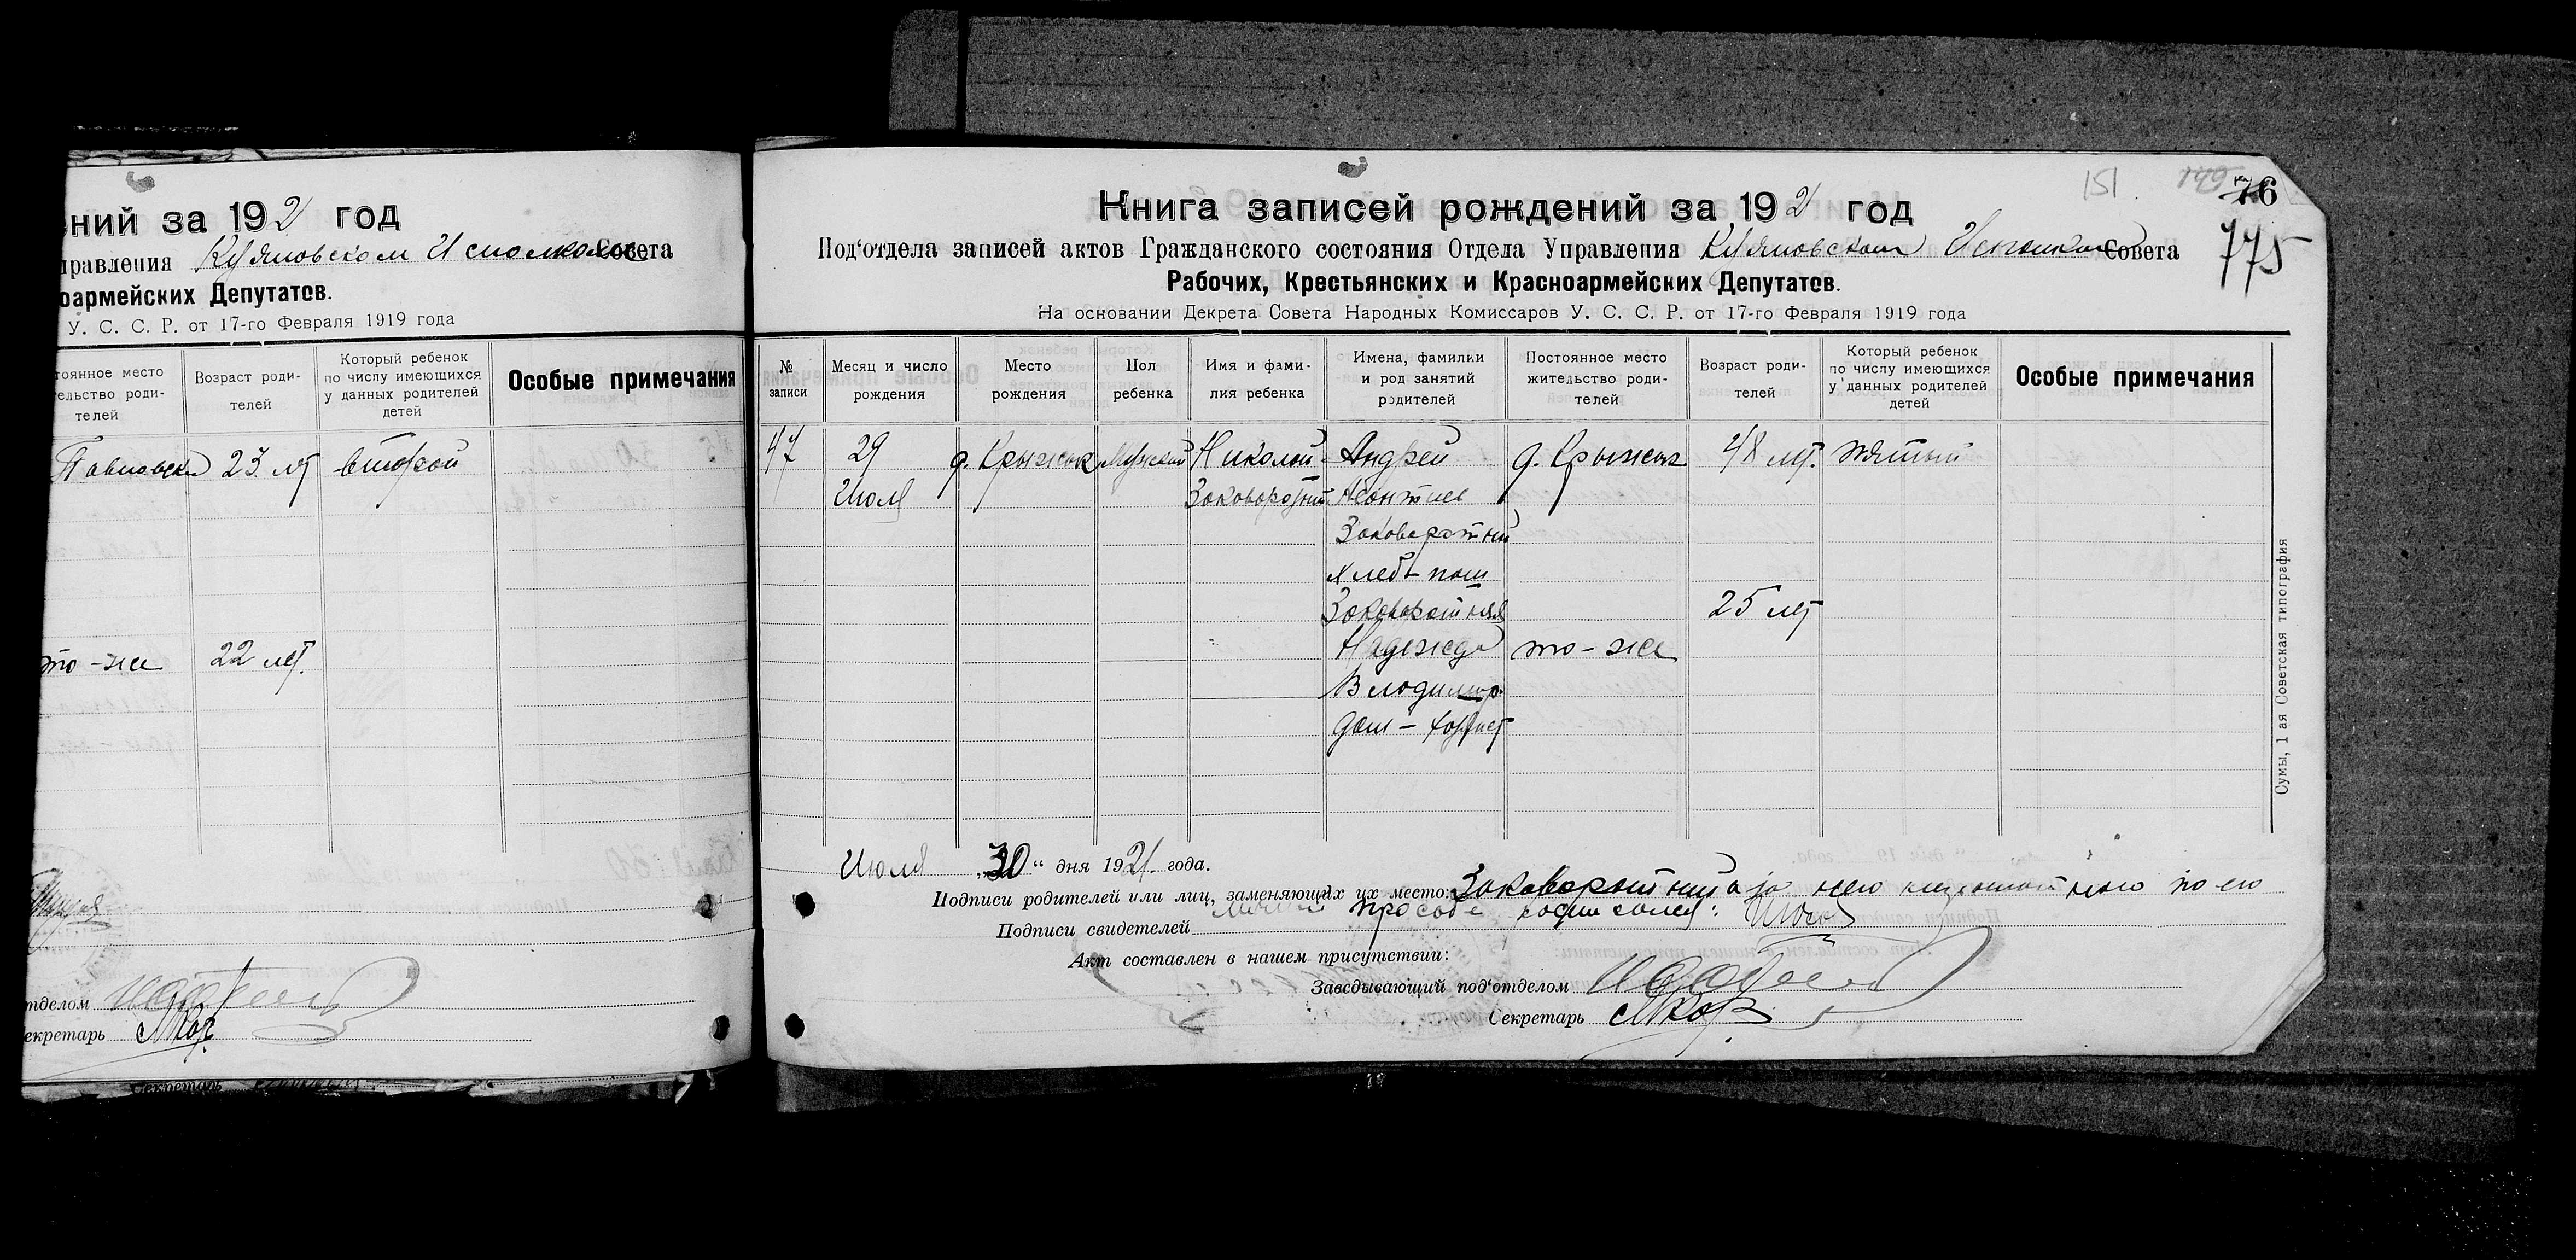 ний за 192 год
правления Исполкоме Совета
оармейских Депутатов.
У. С. С. Р. от 17-го Февраля 1919 года
тоянное место
ельство роди-
телей
Возраст роди-
телей
Который ребенок
по числу имеющихся
у данных родителей
детей
Особые примечания
23 лет второй
то-же 22 лет.
тделом
екретарь
Секретарь
151
149
76
775
Книга записей рождений за 192 год
Под'отдела записей актов Гражданского состояния Отдела Управления Совета
Рабочих, Крестьянских и Красноармейских Депутатов.
На основании Декрета Совета Народных Комиссаров У. С. С. Р. от 17-го Февраля 1919 года
№
записи
Месяц и число
рождения
Место
рождения
Пол
ребенка
Имя и фами-
лия ребенка
Имена, фамилии
и род занятий
родителей
Постоянное место
жительство роди-
телей
Возраст роди-
телей
Который ребенок
по числу имеющихся
у данных родителей
детей
Особые примечания
47 29 д. Крыжык Мужской Николой Андрей д. Крыжык лет. пятый
Июля Заковоротний Леонтиев
Заковоротний
хлеб-паш
Заковоротняя 25 лет
Надежда то-же
Владимир
дом-
Июля „30“ дня 1921 года.
Подписи родителей или лиц, заменяющих их место: Заковоротний а за него по его
просьбе
Подписи свидетелей
Акт составлен в нашем присутствии:
Заведывающий под'отделом
Секретарь
Сумы, 1 ая Советская типография